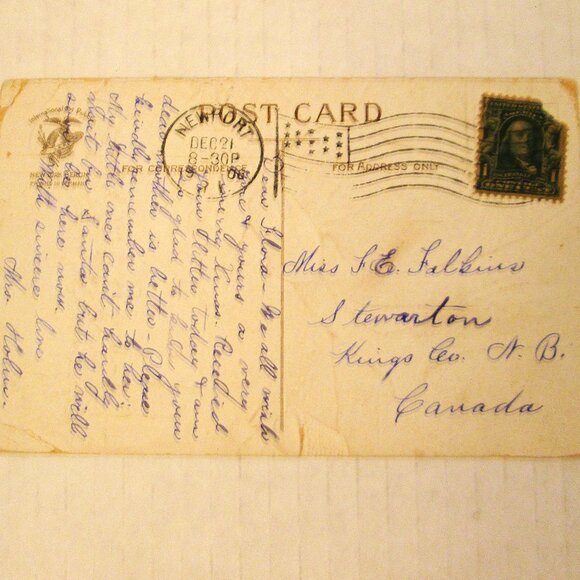 POST CARD
NEWPORT
DEC 21
8-30P
FOR CORRESPONDENCE
FOR ADDRESS ONLY
1
Dear Flora - We all wish
you & yours a very
Merry Xmas. Received
your letter today & am
so glad to hear your
dear mother is better - Please
kindly remember me to her.
My little ones can't hardly
wait for Santa but he will
soon be here now.
With sincere love
Mrs. Holm.
Miss F. E. Falkins
Stewarton
Kings Co. N. B.
Canada